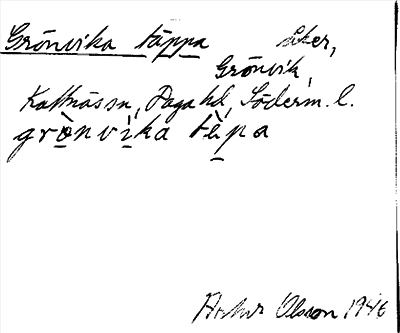 Grönvika täppa åker,
Grönvik,
Kattnäs sn, Daga hd, Söderm. l.
grònvìka tèpa
Arthur Olsson 1946